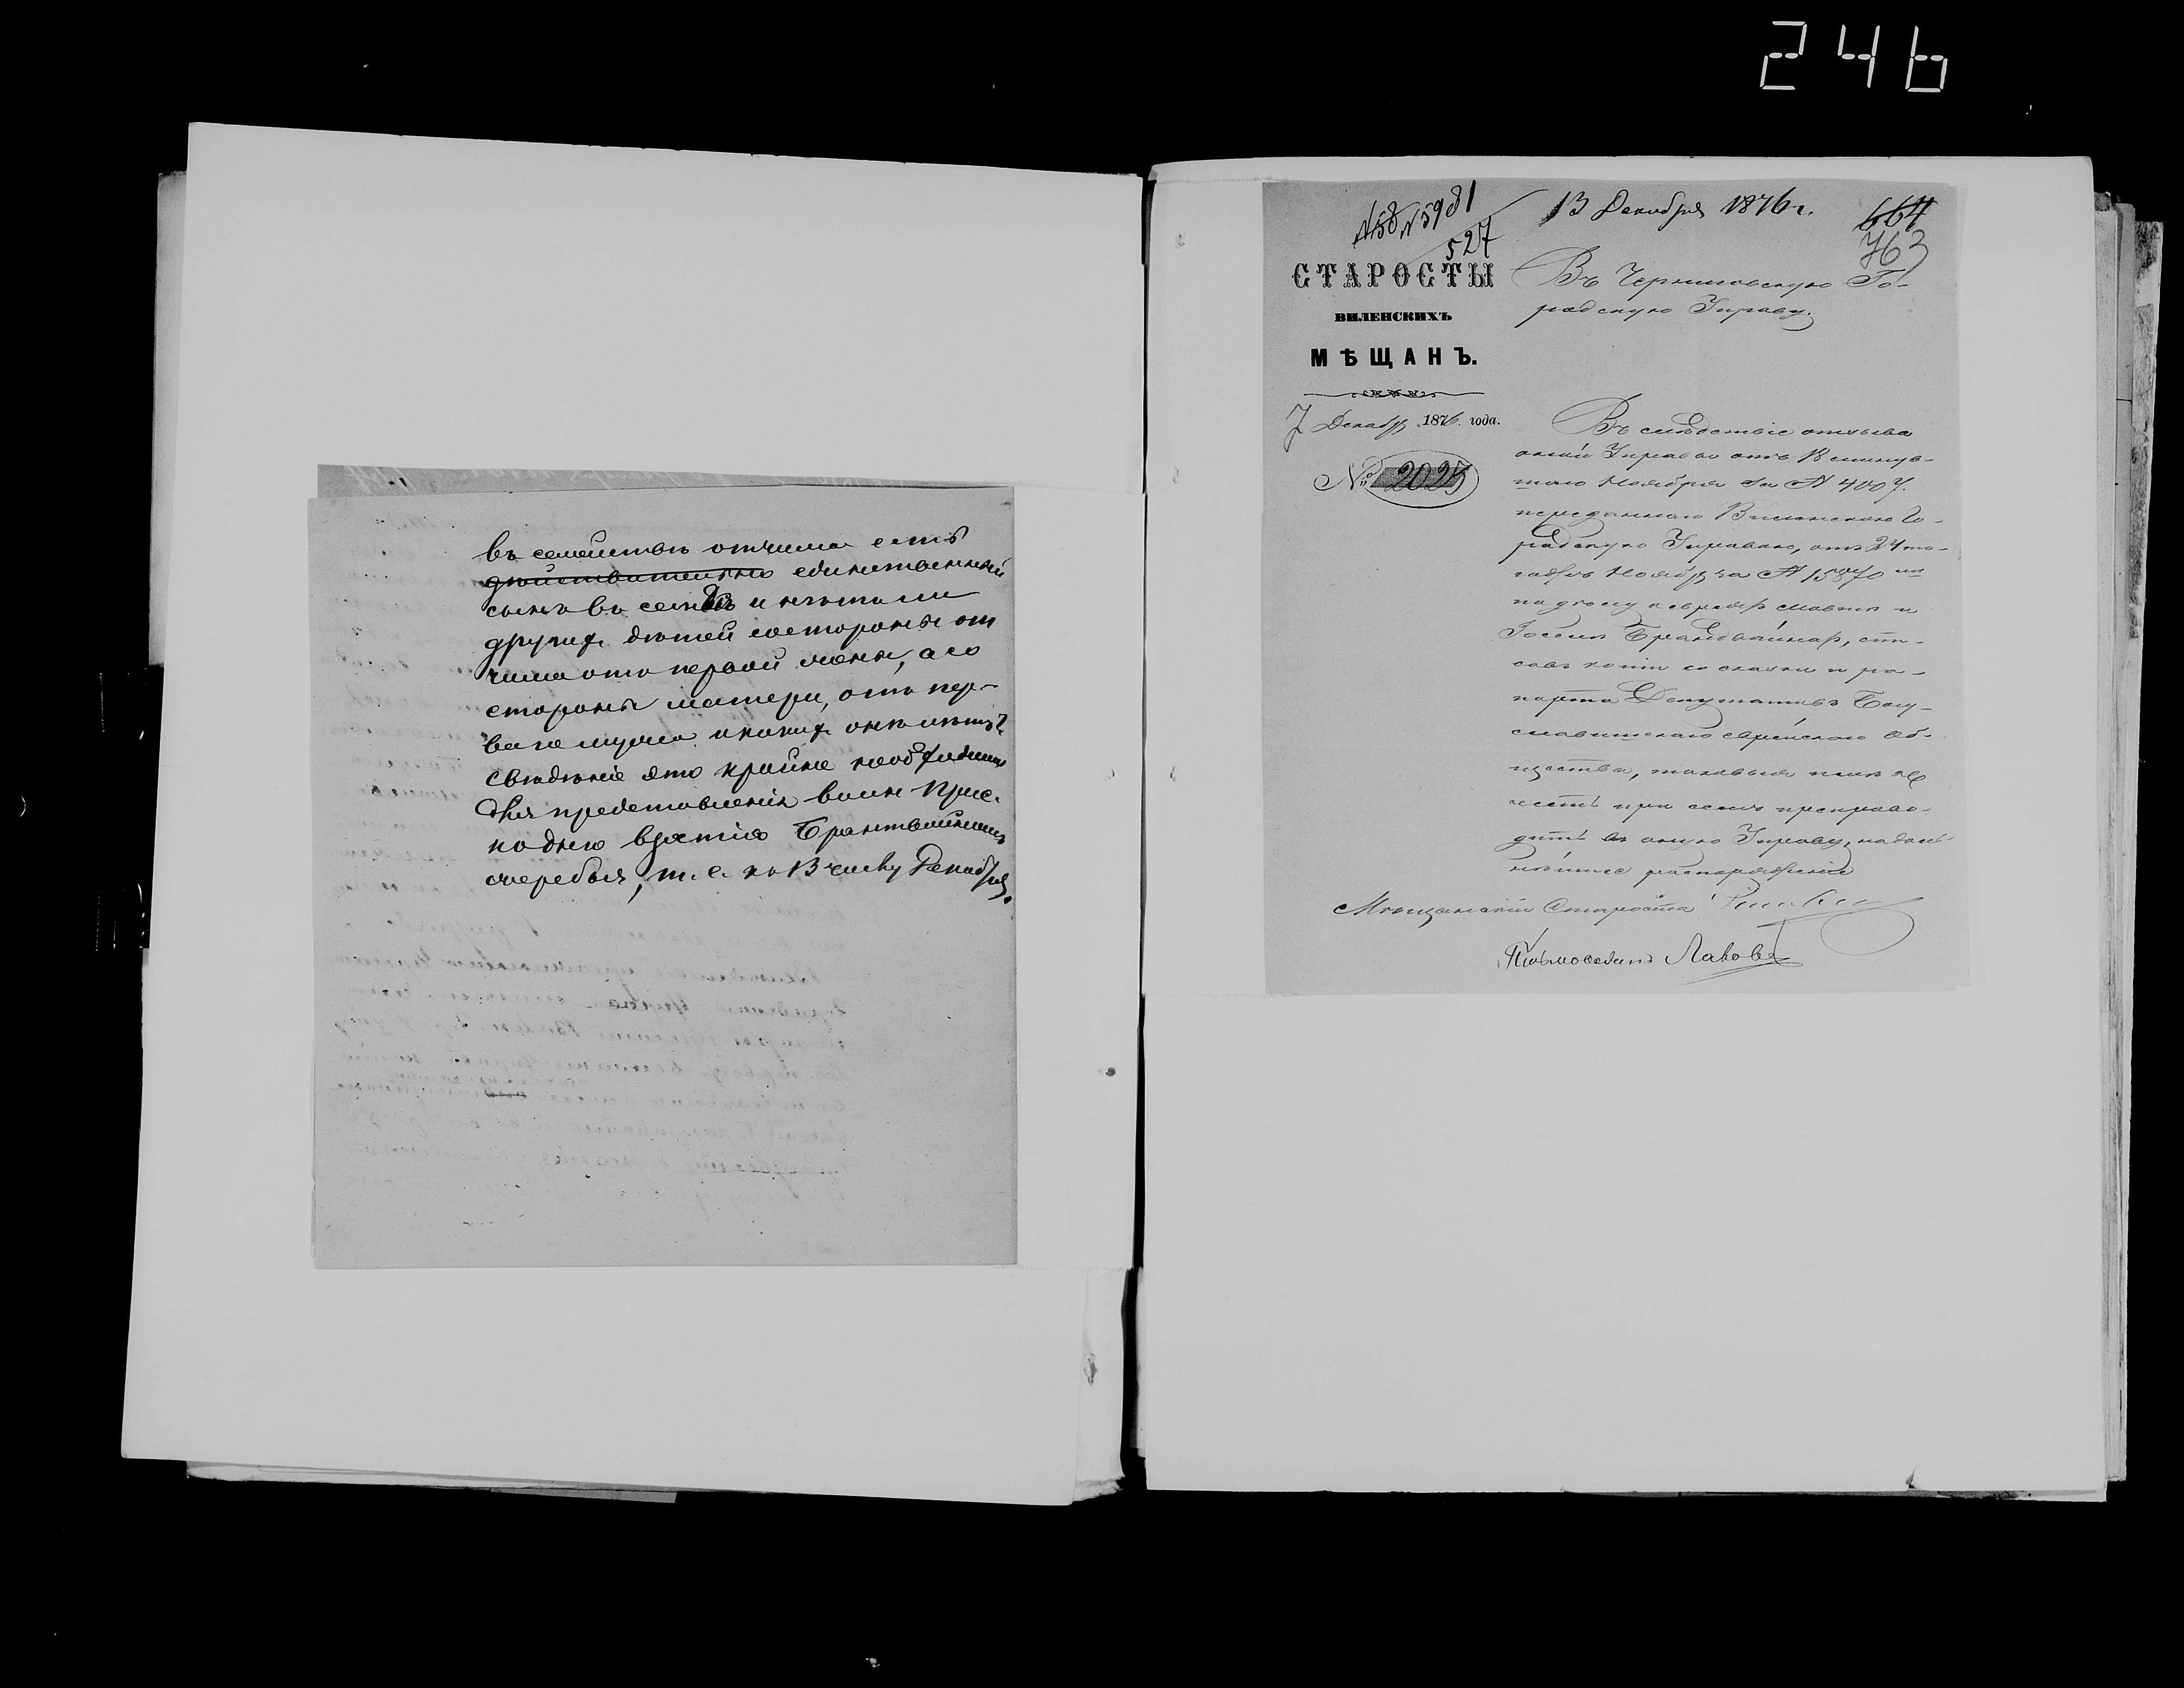 246
въ семействѣ отчима есть
дѣйствительно единственный
сынъ въ семьѣ и нѣтъ ли
другихъ дѣтей со стороны от
чима отъ первой жены, а со
стороны матери, отъ пер-
ваго мужа и какихъ онъ лѣтъ?
свѣдѣніе это крайне необходимо
для представленія воин. Прис.
ко дню взятія Брантвайнамъ
жеребья, т. е. къ 13 числу Декабря.
№58 №5981
527
13 Декабря 1876 г.
664
763
СТАРОСТЫ
ВИЛЕНСКИХЪ
МѢЩАНЪ.
7 Декабр 1876 года.
№ 2025
Въ Черниговскую Го-
родскую Управу.
Въ слѣдствіе отзыва
оной Управы отъ 18 минув-
шаго Ноября за № 4007.
переданнаго Виленскою Го-
родскую Управою, отъ 24 то-
Ноябр за № 15870
по дѣлу о евреяхъ и
Іоселѣ Брандвайнах,
савъ копіи со сказки и ра-
порта Депутатовъ Богу-
славишскаго еврейскаго Об-
щества, таковыя имѣю
честь при семъ препрово-
дить въ оную Управу, на даль-
нѣйшее распоряженіе
Мѣщанскій Староста
Письмоводит Лавовъ